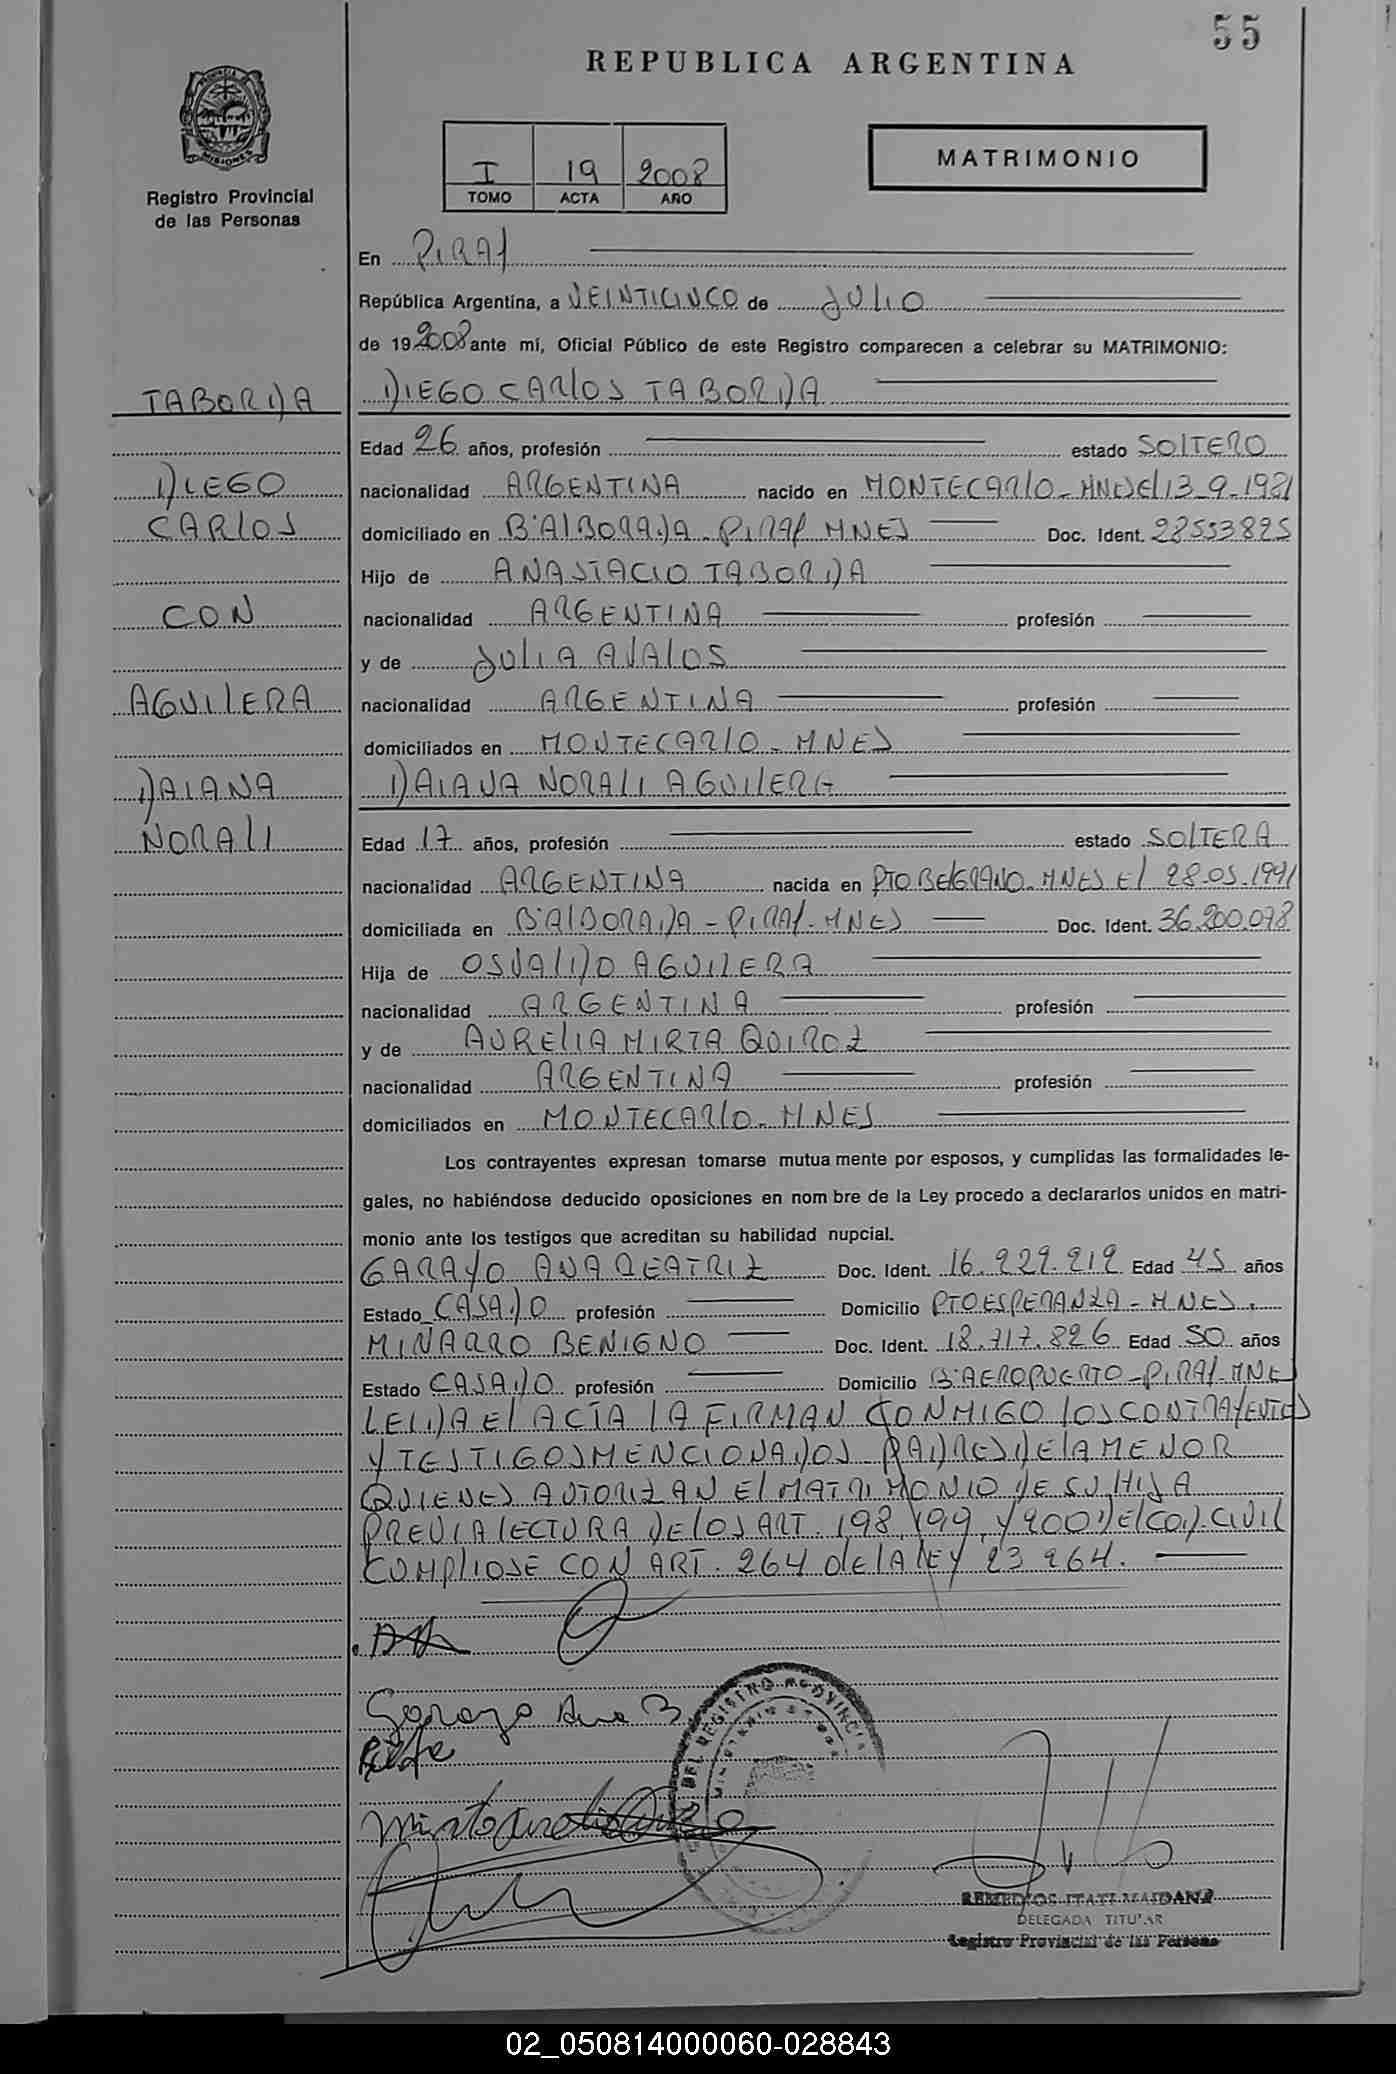 55
REPUBLICA ARGENTINA
Registro Provincial
de las Personas
I 19 2008
TOMO ACTA AÑO
MATRIMONIO
En PIRAY
República Argentina, a VEINTICINCO de JULIO
de 19 2008 ante mí, Oficial Público de este Registro comparecen a celebrar su MATRIMONIO:
TABORDA
DIEGO
CARLOS
CON
AGUILERA
DAIANA
NORALI
DIEGO CARLOS TABORDA
Edad 26 años, profesión estado SOLTERO
nacionalidad ARGENTINA nacido en MONTECARLO-MNES El 13-9-1981
domiciliado en Bº ALBORADA-PIRAY MNES Doc. Ident. 28553825
Hijo de ANASTACIO TABORDA
nacionalidad ARGENTINA profesión
y de JULIA AVALOS
nacionalidad ARGENTINA profesión
domiciliados en MONTECARLO-MNES
DAIANA NORALI AGUILERA
Edad 17 años, profesión estado SOLTERA
nacionalidad ARGENTINA nacida en PTO BELGRANO-MNES El 28-05-1991
domiciliada en Bº ALBORADA-PIRAY-MNES Doc. Ident. 36.200.078
Hija de OSVALDO AGUILERA
nacionalidad ARGENTINA profesión
y de AURELIA MIRTA QUIROZ
nacionalidad ARGENTINA profesión
domiciliados en MONTECARLO-MNES
Los contrayentes expresan tomarse mutua mente por esposos, y cumplidas las formalidades le-
gales, no habiéndose deducido oposiciones en nom bre de la Ley procedo a declararlos unidos en matri-
monio ante los testigos que acreditan su habilidad nupcial.
GARAYO ANA BEATRIZ Doc. Ident. 16.929.919 Edad 45 años
Estado CASADO profesión Domicilio PTO ESPERANZA-MNES.
MIÑARRO BENIGNO Doc. Ident. 18.717.826 Edad 50 años
Estado CASADO profesión Domicilio Bº AEROPUERTO-PIRAY-MNE
LEIDA El ACTA LA FIRMAN CONMIGO LOS CONTRAYENTES
Y TESTIGOS MENCIONADOS PADRES DE LA MENOR
QUIENES AUTORIZAN El MATRIMONIO DE SU HIJA
PREVIA LECTURA DE LOS ART. 198, 199, Y 200 DEL COD. CIVIL
CUMPLIOSE CON ART. 264 DE LA LEY 23264.
Garayo Ana B.
REMEDIOS ITATI MAIDANA
DELEGADA TITULAR
Registro Provincial de las Persona
02_050814000060-028843